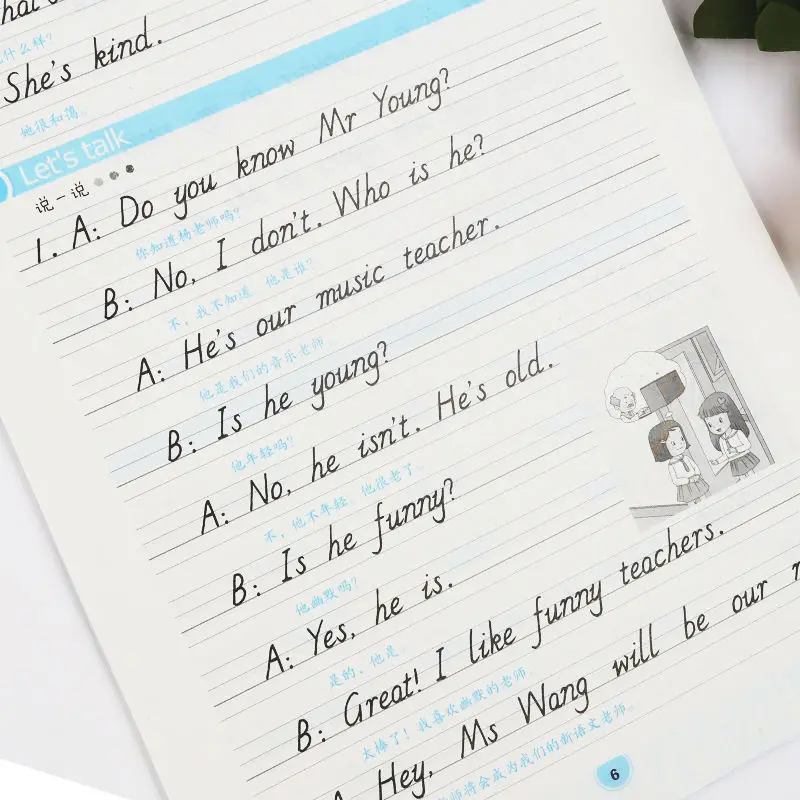 什么样?
She's kind.
她很和蔼。
Let's talk
说一说
1. A: Do you know Mr Young?
你知道杨老师吗?
B: No, I don't. Who is he?
不,我不知道 他是谁?
A: He's our music teacher.
他是我们的音乐老师
B: Is he young?
他年轻吗?
A: No, he isn't. He's old.
不,他不年轻 他很老了
B: Is he funny?
他幽默吗?
A: Yes, he is.
是的,他是
B: Great! I like funny teachers.
太棒了!我喜欢幽默的老师。
A Hey, Ms Wang will be our
老师将会成为我们的新语文老师。
6